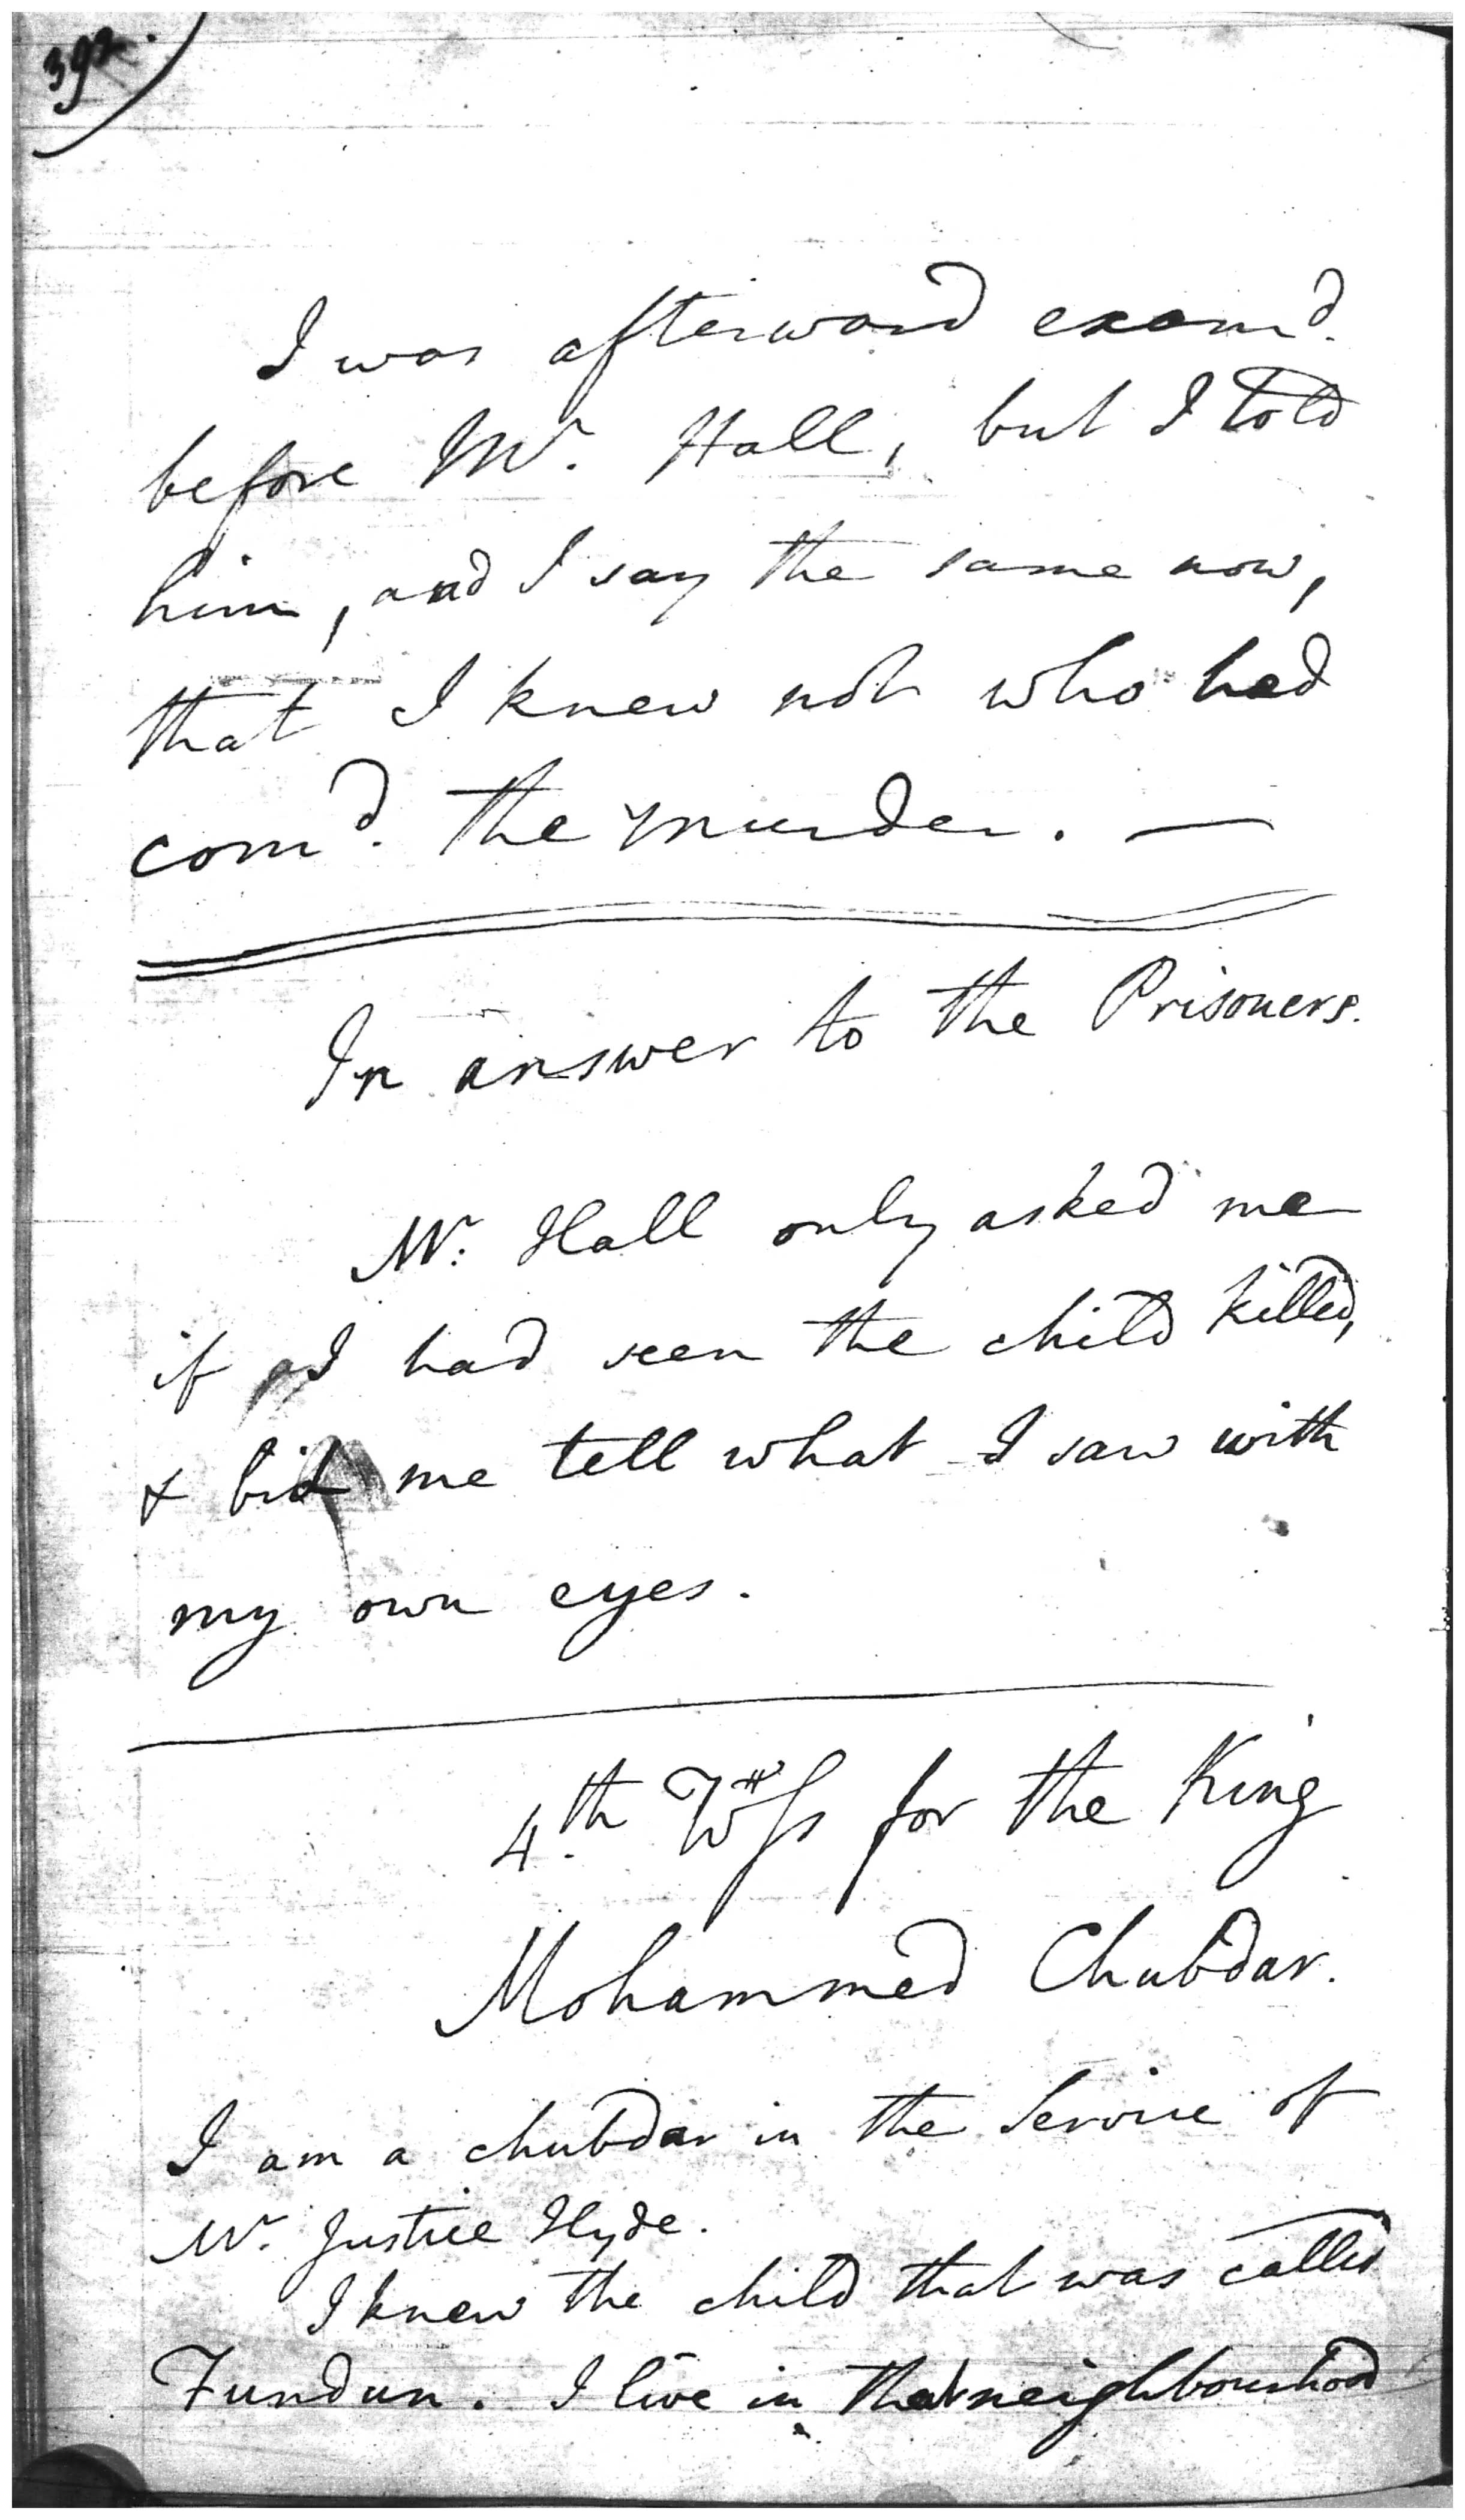 392.
I was afterward examd.
before Mr. Hall, but I told
him, and I say the same now,
that I knew not who had
comd. the murder. —
In answer to the Prisoners.
Mr. Hall only asked me
if I had seen the child killed,
& bid me tell what I saw with
my own eyes.
4th. Wss for the King
Mohammed Chubdar.
I am a chubdar in the Service of
Mr. Justice Hyde.
I knew the child that was called
Fundun. I live in that neighbourhood